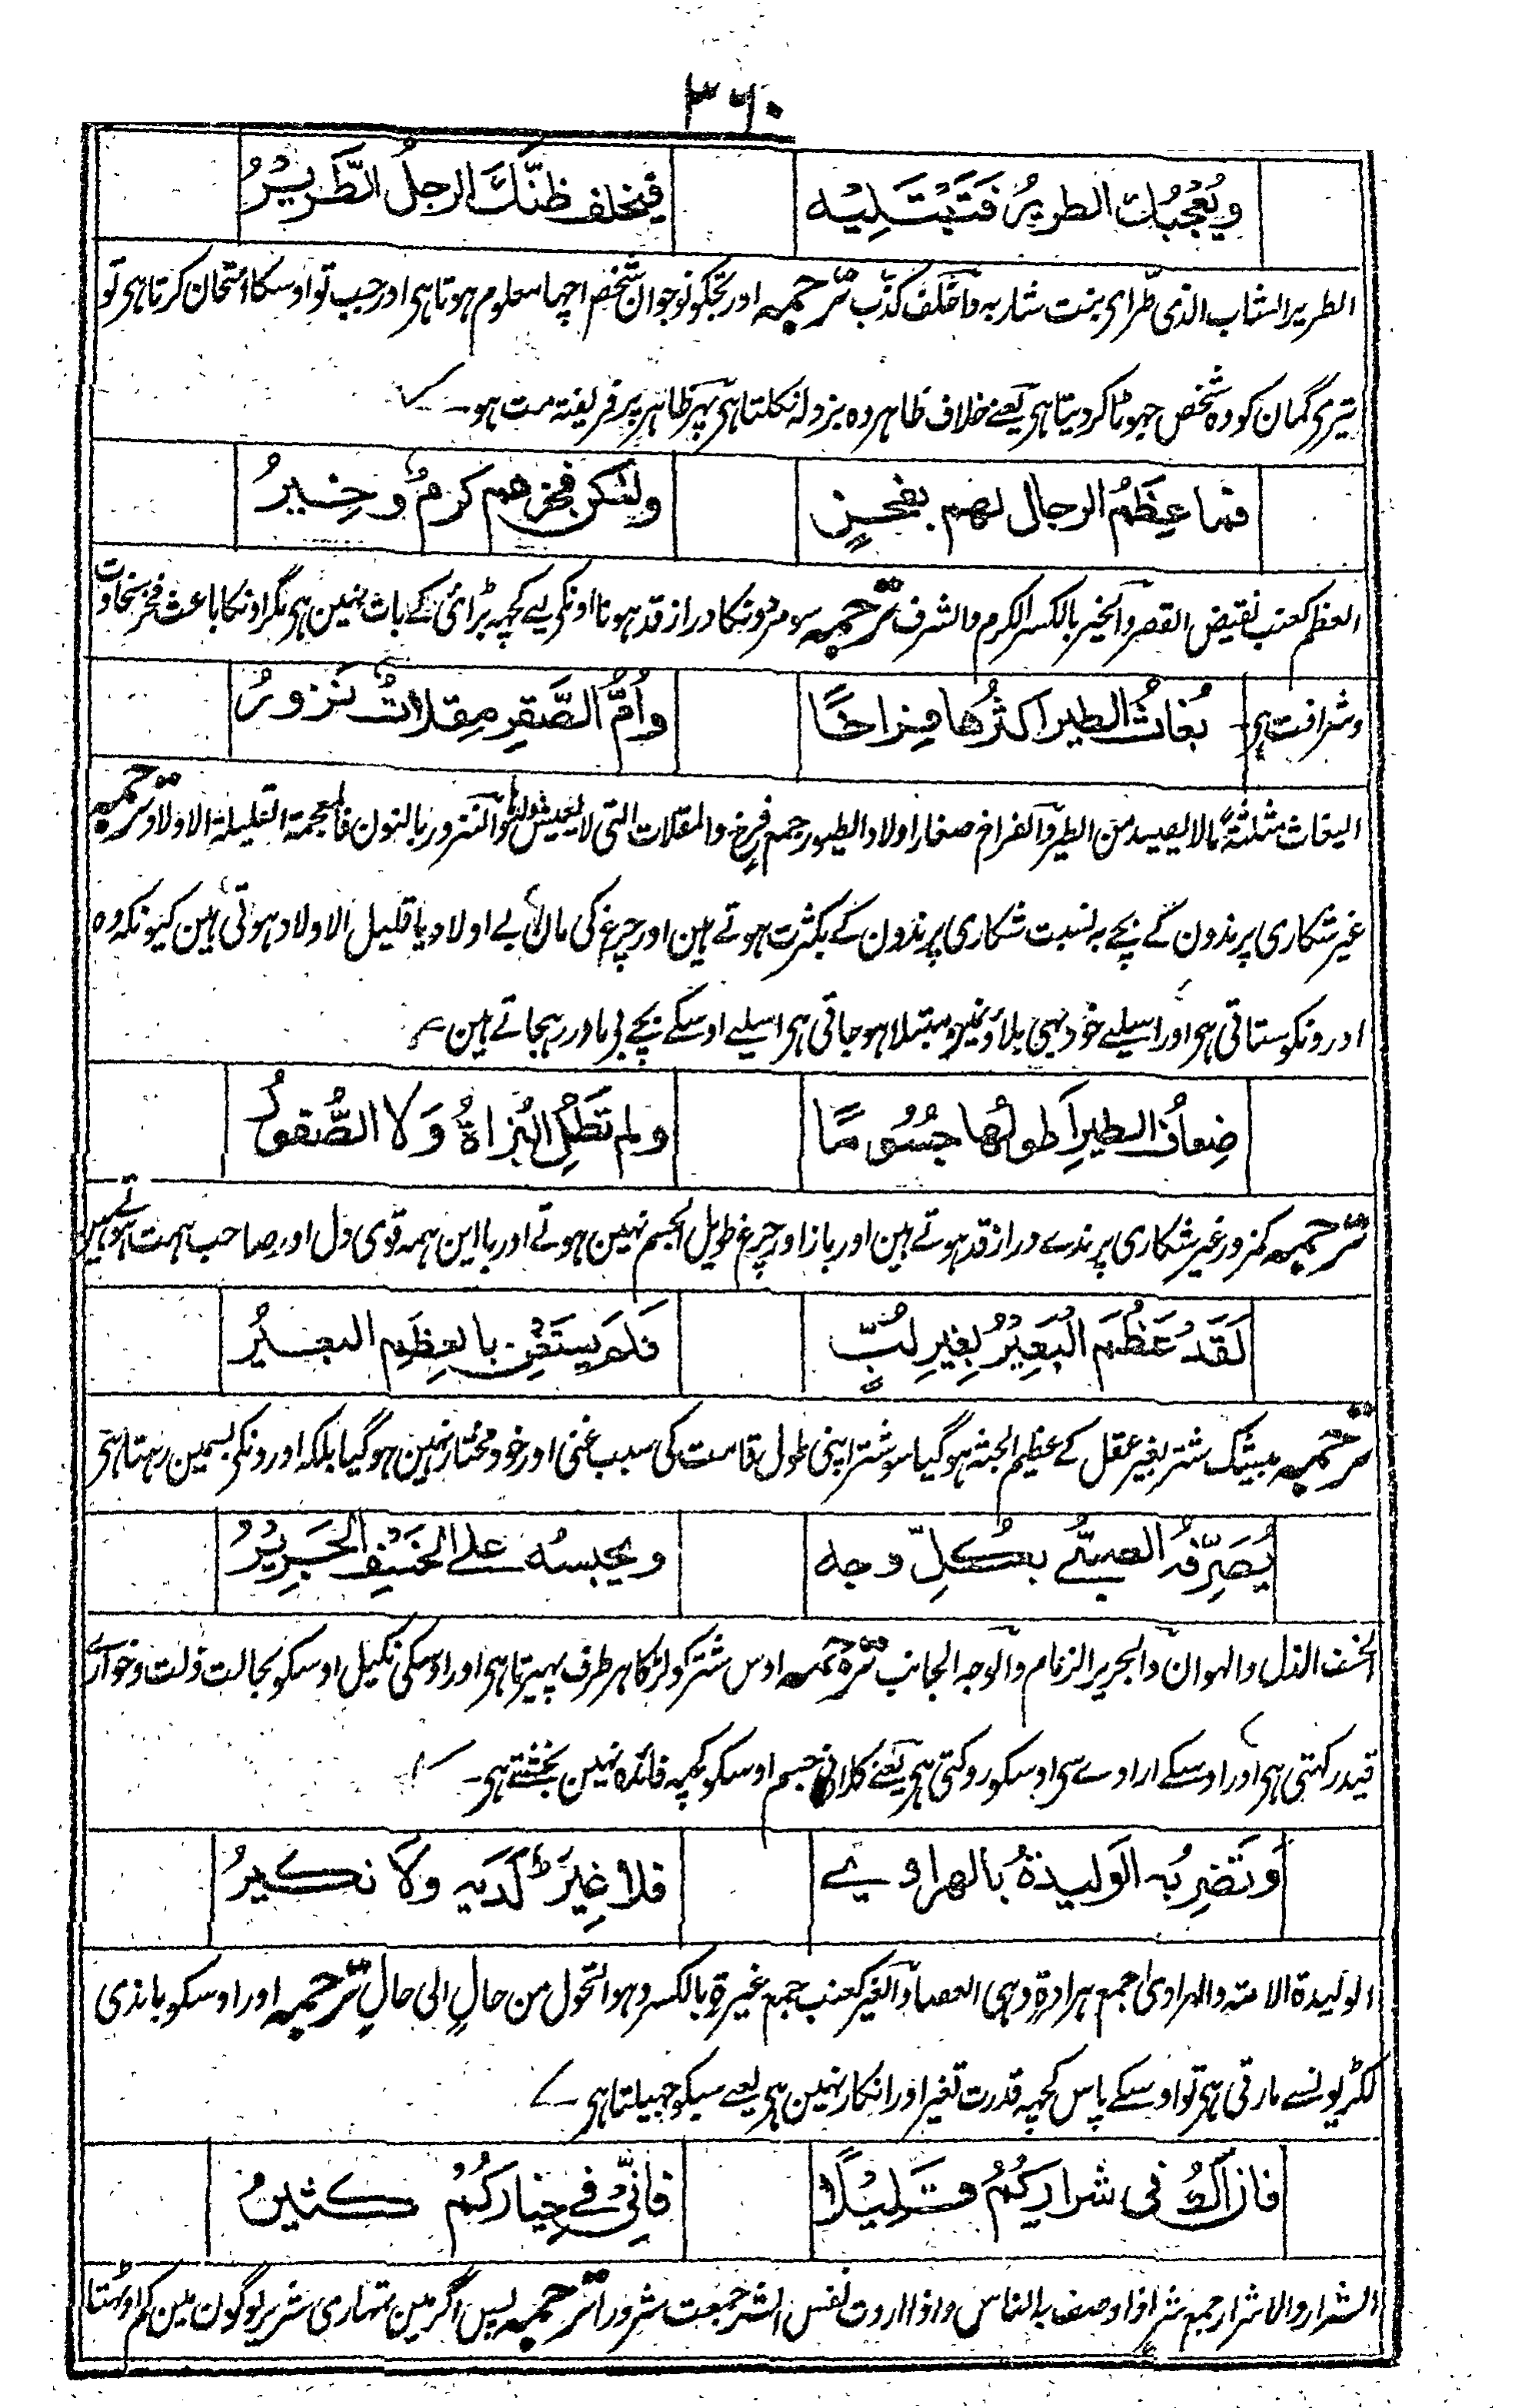 ۳۶۰
ويُعْجِبُكَ الطرِيرُ فَتَبْتَلِيْه فيخلف ظنَّكَ الرجلُ الطَّرِيْرُ
الطریر الشاب الذی طرّ ای نبت شاربہ واخلف کذب ترجمہ اور تجکو نوجوان شخص اچہا معلوم ہوتا ہی اور جب تو اوسکا امتحان کرتا ہی تو
تیری گمان کو وہ شخص جہوٹا کر دیتا ہی یعنے خلاف ظاہر وہ بزدلہ نکلتا ہی پہر ظاہر پر فریفتہ مت ہو۔
فما عِظَمُ الرجال لهم بفخرٍ ولٰكن فخرهم كرمٌ وخِيرُ
العظم کعنب نقیض القصر والخیر بالکسر الکرم والشرف ترجمہ سو مردونکا دراز قد ہونا اونکی لیے کچہہ بڑائی کے بات نہین ہی مگر اونکا باعث فخر سخاوت
وشرافت ہی بُغاثُ الطير اكثرُها فِراخًا وأمُّ الصَّقرِ مِقلاتٌ نَزورُ
البغاث مثلثۃ مالا یصید من الطیر والفراخ صغار اولاد الطیور جمع فرخ والمقلات التی لایعیش ولدہا والنزور بالنون فالمعجمۃ القلیلۃ الاولاد ترجمہ
غیر شکاری پرندون کے بچے بہ نسبت شکاری پرندون کے بکثرت ہوتے ہین اور چرغ کی مان بے اولاد یا قلیل الاولاد ہوتی ہین کیونکہ وہ
اورونکو ستاتی ہی اور اسیلیے خود بہی بلاؤنمین مبتلا ہو جاتی ہی اسلیے اوسکے بچے بی مادر رہجاتے ہین
ضِعافُ الطيرِ اَطولُها جُسُومًا ولم تَطُلِ البُزاةُ وَلا الصُّقورُ
ترجمہ کمزور غیر شکاری پرندے دراز قد ہوتے ہین اور باز اور چرغ طویل الجسم نہین ہوتے اور با این ہمہ قوی دل اور صاحب ہمت ہوتے ہین
لَقَدْ عَظُمَ الْبَعِيْرُ بِغَيرِ لُبٍّ فَلَم يستَغْنِ بالعِظَمِ البعيرُ
ترجمہ بیشک شتر بغیر عقل کے عظیم الجثہ ہو گیا سو شتر اپنی طول قامت کی سبب غنی اور خود مختار نہین ہو گیا بلکہ اورونکی بسمین رہتا ہی
يُصَرِّفُه الصبيُّ بكُلِّ وجه ويحبسُه على الخَسْفِ الجَرِيْرُ
الخسف الذل والہوان والجریر الزمام والوجہ الجانب ترجمہ اوس شتر کو لڑکا ہر طرف پہیرتا ہی اور اوسکی نکیل اوسکو بحالت ذلت وخواری
قید رکہتی ہی اور اوسکے ارادے سی اوسکو روکتی ہی یعنے کلانی جسم اوسکو کچہہ فائدہ نہین بخشتے ہی۔
وَتَضرِبُه الوَليدةُ بالهراوٰي فلا غِيَرٌ لَدَيه ولا نكيرُ
الولیدۃ الامتہ والہراوی جمع ہراوۃ وہی العصا والغیر کعنب جمع غیرۃ بالکسر وہو التحول من حالٍ الی حالٍ ترجمہ اور اوسکو باندی
لکڑیونسے مارتی ہی تو اوسکے پاس کچہہ قدرت تغیر اور انکار نہین ہی یعنے سبکو جہیلتا ہی
فان اكُ في شراركُمْ قَليلًا فانِّي في خِياركُمْ كثيرُ
الشرار والاشرار جمع شر اذا وصف بہ الناس واذا اردت نفس الشر جمعت شرورا ترجمہ پس اگر مین تمہاری شریر لوگون مین کم اوٹہتا